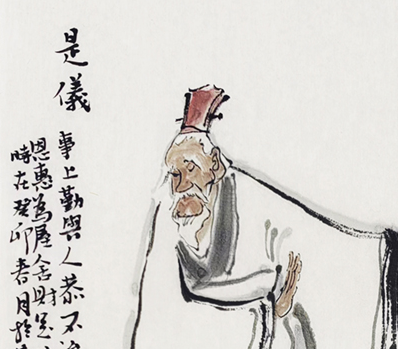 是儀
事上勤與人恭不
恩惠為屋舍財足
時在癸卯春月於